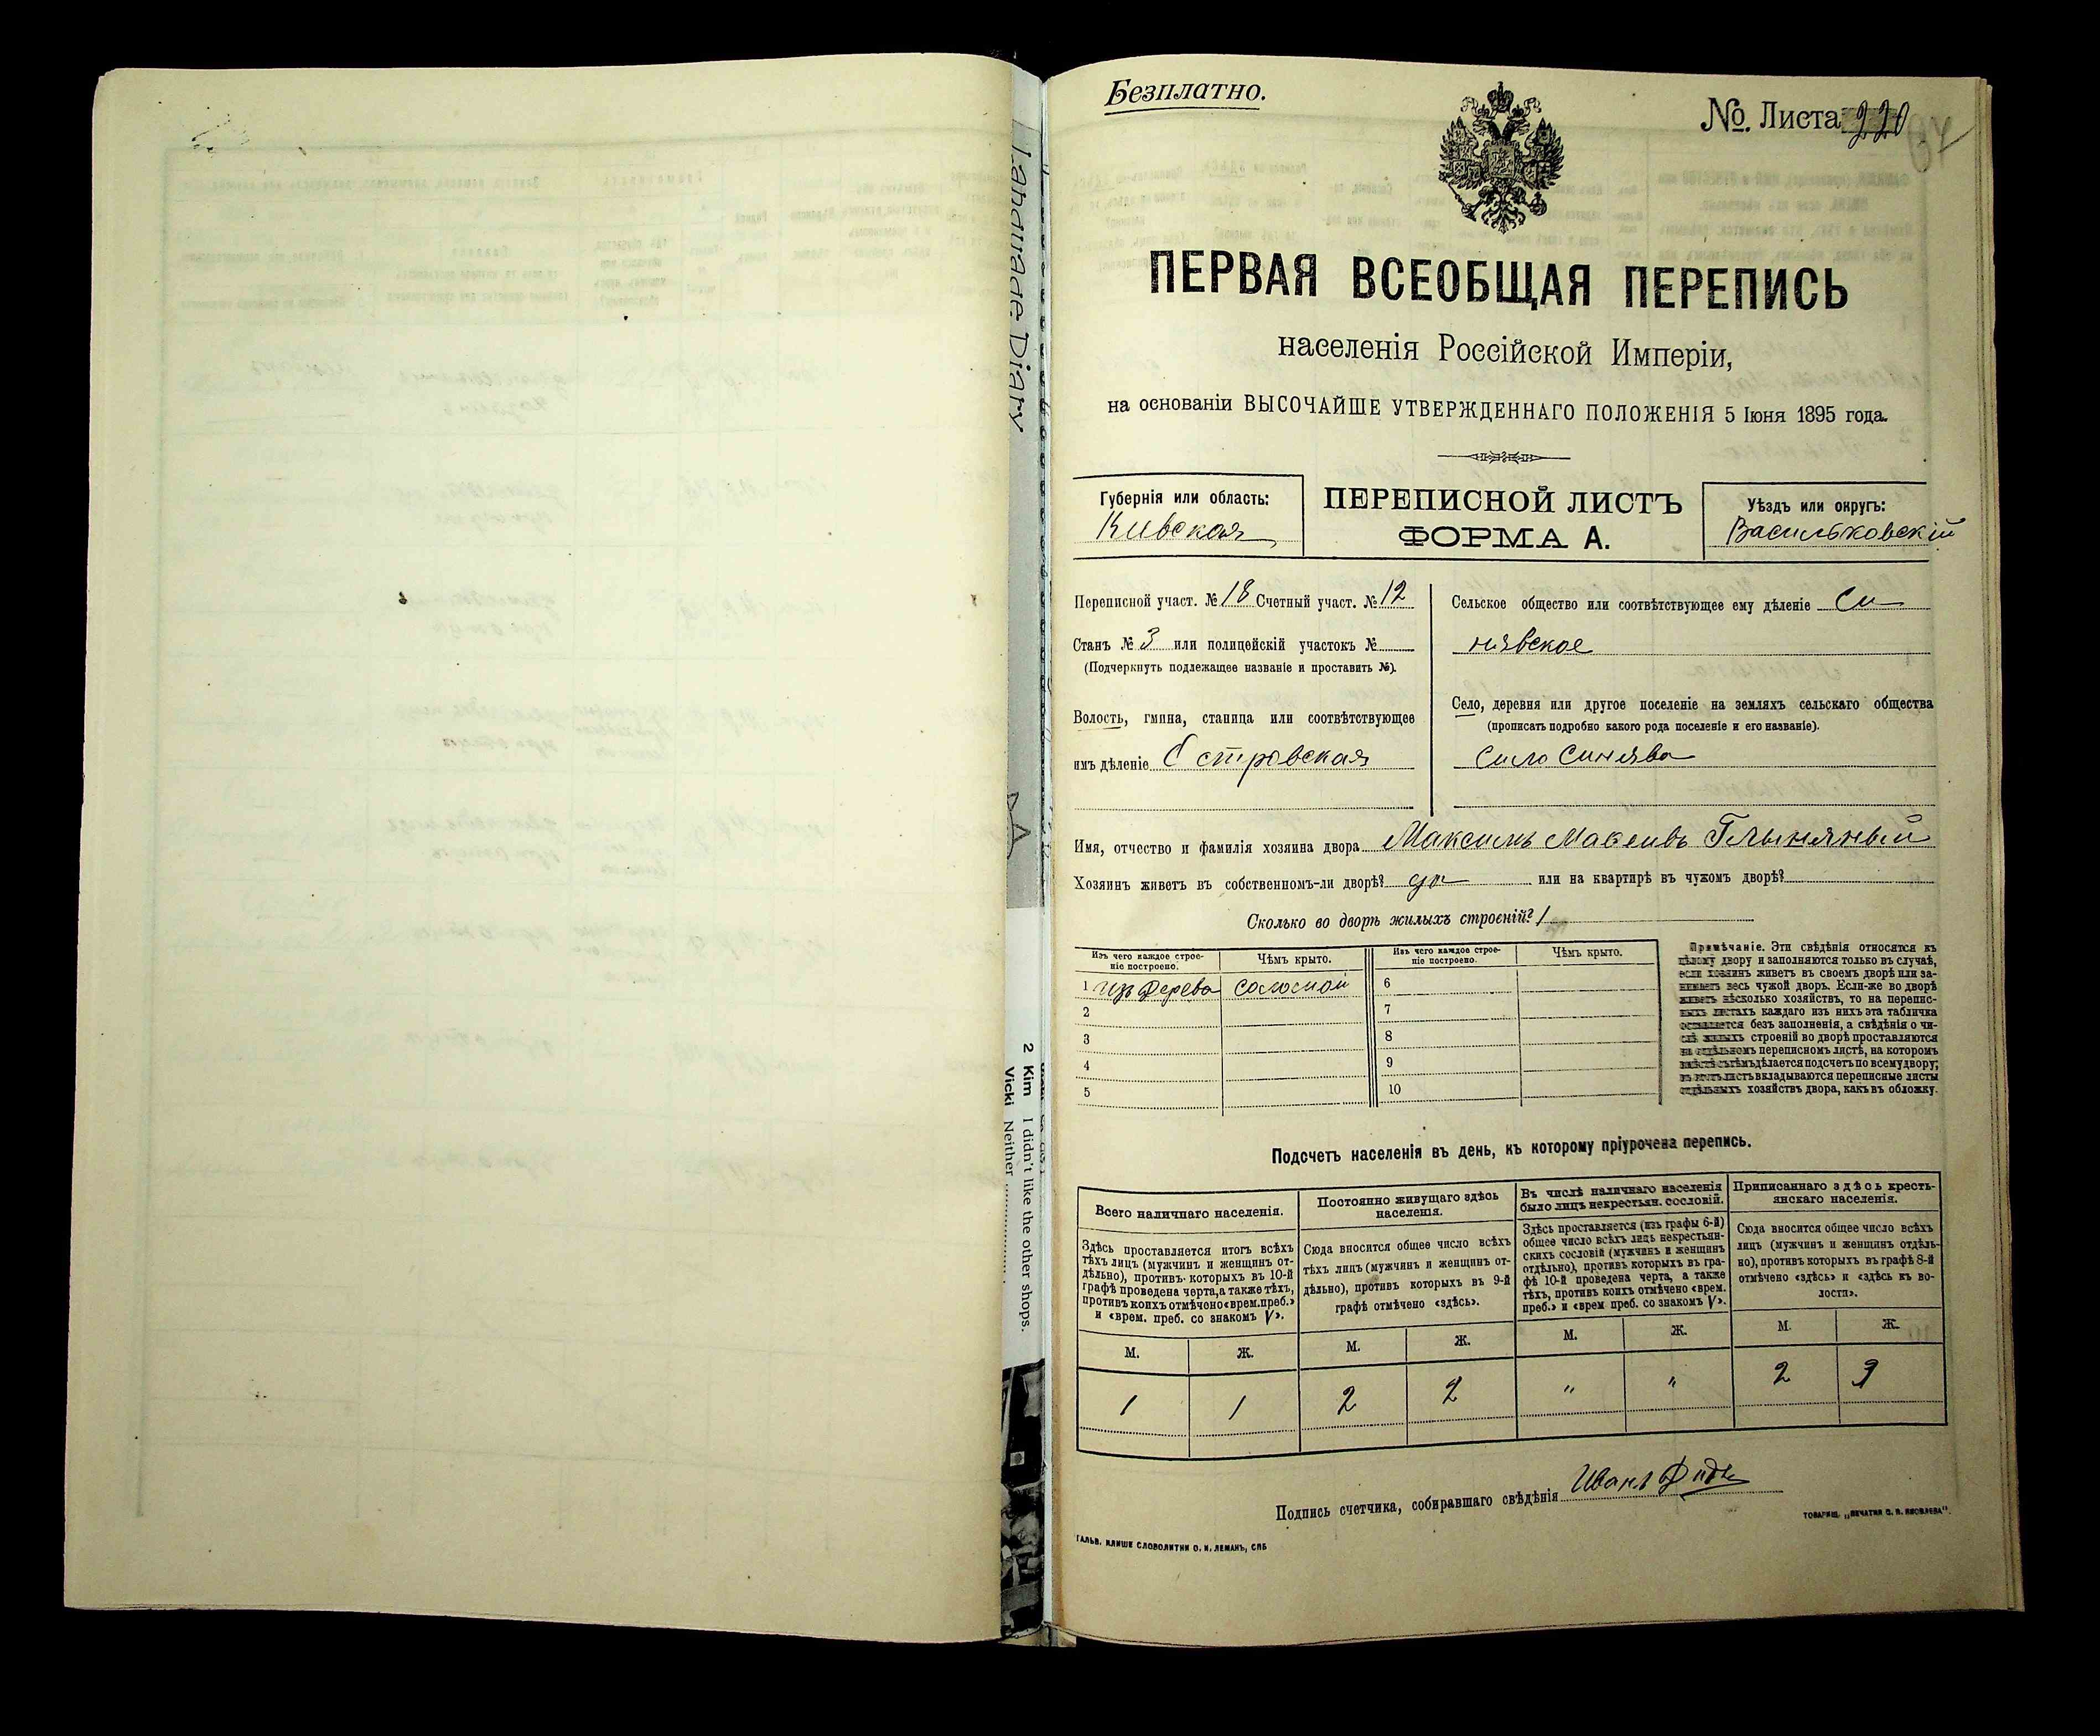 Language Diary
2 Kim I didn't like the other shops.
Vicki Neither
Безплатно.
№. Листа 220
ПЕРВАЯ ВСЕОБЩАЯ ПЕРЕПИСЬ
населенія Россійской Имперіи,
на основаніи ВЫСОЧАЙШЕ УТВЕРЖДЕННАГО ПОЛОЖЕНІЯ 5 Іюня 1895 года.
Губернія или область:
Кіевская
ПЕРЕПИСНОЙ ЛИСТЪ
ФОРМА А.
Уѣздъ или округъ:
Васильковскій
Переписной участ. № 18 Счетный участ. № 12
Станъ № 3 или полицейскій участокъ №
(Подчеркнуть подлежащее названіе и проставить №).
Волость, гмина, станица или соотвѣтствующее
имъ дѣленіе Островская
Сельское общество или соотвѣтствующее ему дѣленіе Си-
нявское
Село, деревня или другое поселеніе на земляхъ сельскаго общества
(прописать подробно какого рода поселеніе и его названіе).
Село Синява
Имя, отчество и фамилія хозяина двора Максимъ
Хозяинъ живетъ въ собственномъ-ли дворѣ? да или на квартирѣ въ чужомъ дворѣ?
Сколько во дворѣ жилыхъ строеній? 1
Изъ чего каждое строе-
ніе построено.
Чѣмъ крыто.
Изъ чего каждое строе-
ніе построено.
Чѣмъ крыто.
1 изъ дерева соломой 6
2 7
3 8
4 9
5 10
Примѣчаніе. Эти свѣдѣнія относятся къ
цѣлому двору и заполняются только въ случаѣ,
если хозяинъ живетъ въ своемъ дворѣ или за-
нимаетъ весь чужой дворъ. Если-же во дворѣ
живетъ нѣсколько хозяйствъ, то на перепис-
ныхъ листахъ каждаго изъ нихъ эта табличка
оставляется безъ заполненія, а свѣдѣнія о чи-
слѣ жилыхъ строеній во дворѣ проставляются
на отдѣльномъ переписномъ листѣ, на которомъ
вмѣстѣ съ тѣмъ дѣлается подсчетъ по всему двору;
въ этотъ листъ вкладываются переписные листы
отдѣльныхъ хозяйствъ двора, какъ въ обложку.
Подсчетъ населенія въ день, къ которому пріурочена перепись.
Всего наличнаго населенія.
Здѣсь проставляется итогъ всѣхъ
тѣхъ лицъ (мужчинъ и женщинъ от-
дѣльно), противъ которыхъ въ 10-й
графѣ проведена черта, а также тѣхъ,
противъ коихъ отмѣчено «врем. преб.»
и «врем. преб. со знакомъ V».
Постоянно живущаго здѣсь
населенія.
Сюда вносится общее число всѣхъ
тѣхъ лицъ (мужчинъ и женщинъ от-
дѣльно), противъ которыхъ въ 9-й
графѣ отмѣчено «здѣсь».
Въ числѣ наличнаго населенія
было лицъ некрестьян. сословій.
Здѣсь проставляется (изъ графы 6-й)
общее число всѣхъ лицъ некрестьян-
скихъ сословій (мужчинъ и женщинъ
отдѣльно), противъ которыхъ въ гра-
фѣ 10-й проведена черта, а также
тѣхъ, противъ коихъ отмѣчено «врем.
преб.» и «врем преб. со знакомъ V».
Приписаннаго здѣсь кресть-
янскаго населенія.
Сюда вносится общее число всѣхъ
лицъ (мужчинъ и женщинъ отдѣль-
но), противъ которыхъ въ графѣ 8-й
отмѣчено «здѣсь» и «здѣсь къ во-
лости».
М. Ж. М. Ж. М. Ж. М. Ж.
1 1 2 2 " " 2 3
Подпись счетчика, собиравшаго свѣдѣнія Иванъ
ГАЛЬВ. КЛИШЕ СЛОВОЛИТНИ О. И. ЛЕМАНЪ, СПБ
ТОВАРИЩ. „ПЕЧАТНЯ С. П. ЯКОВЛЕВА".